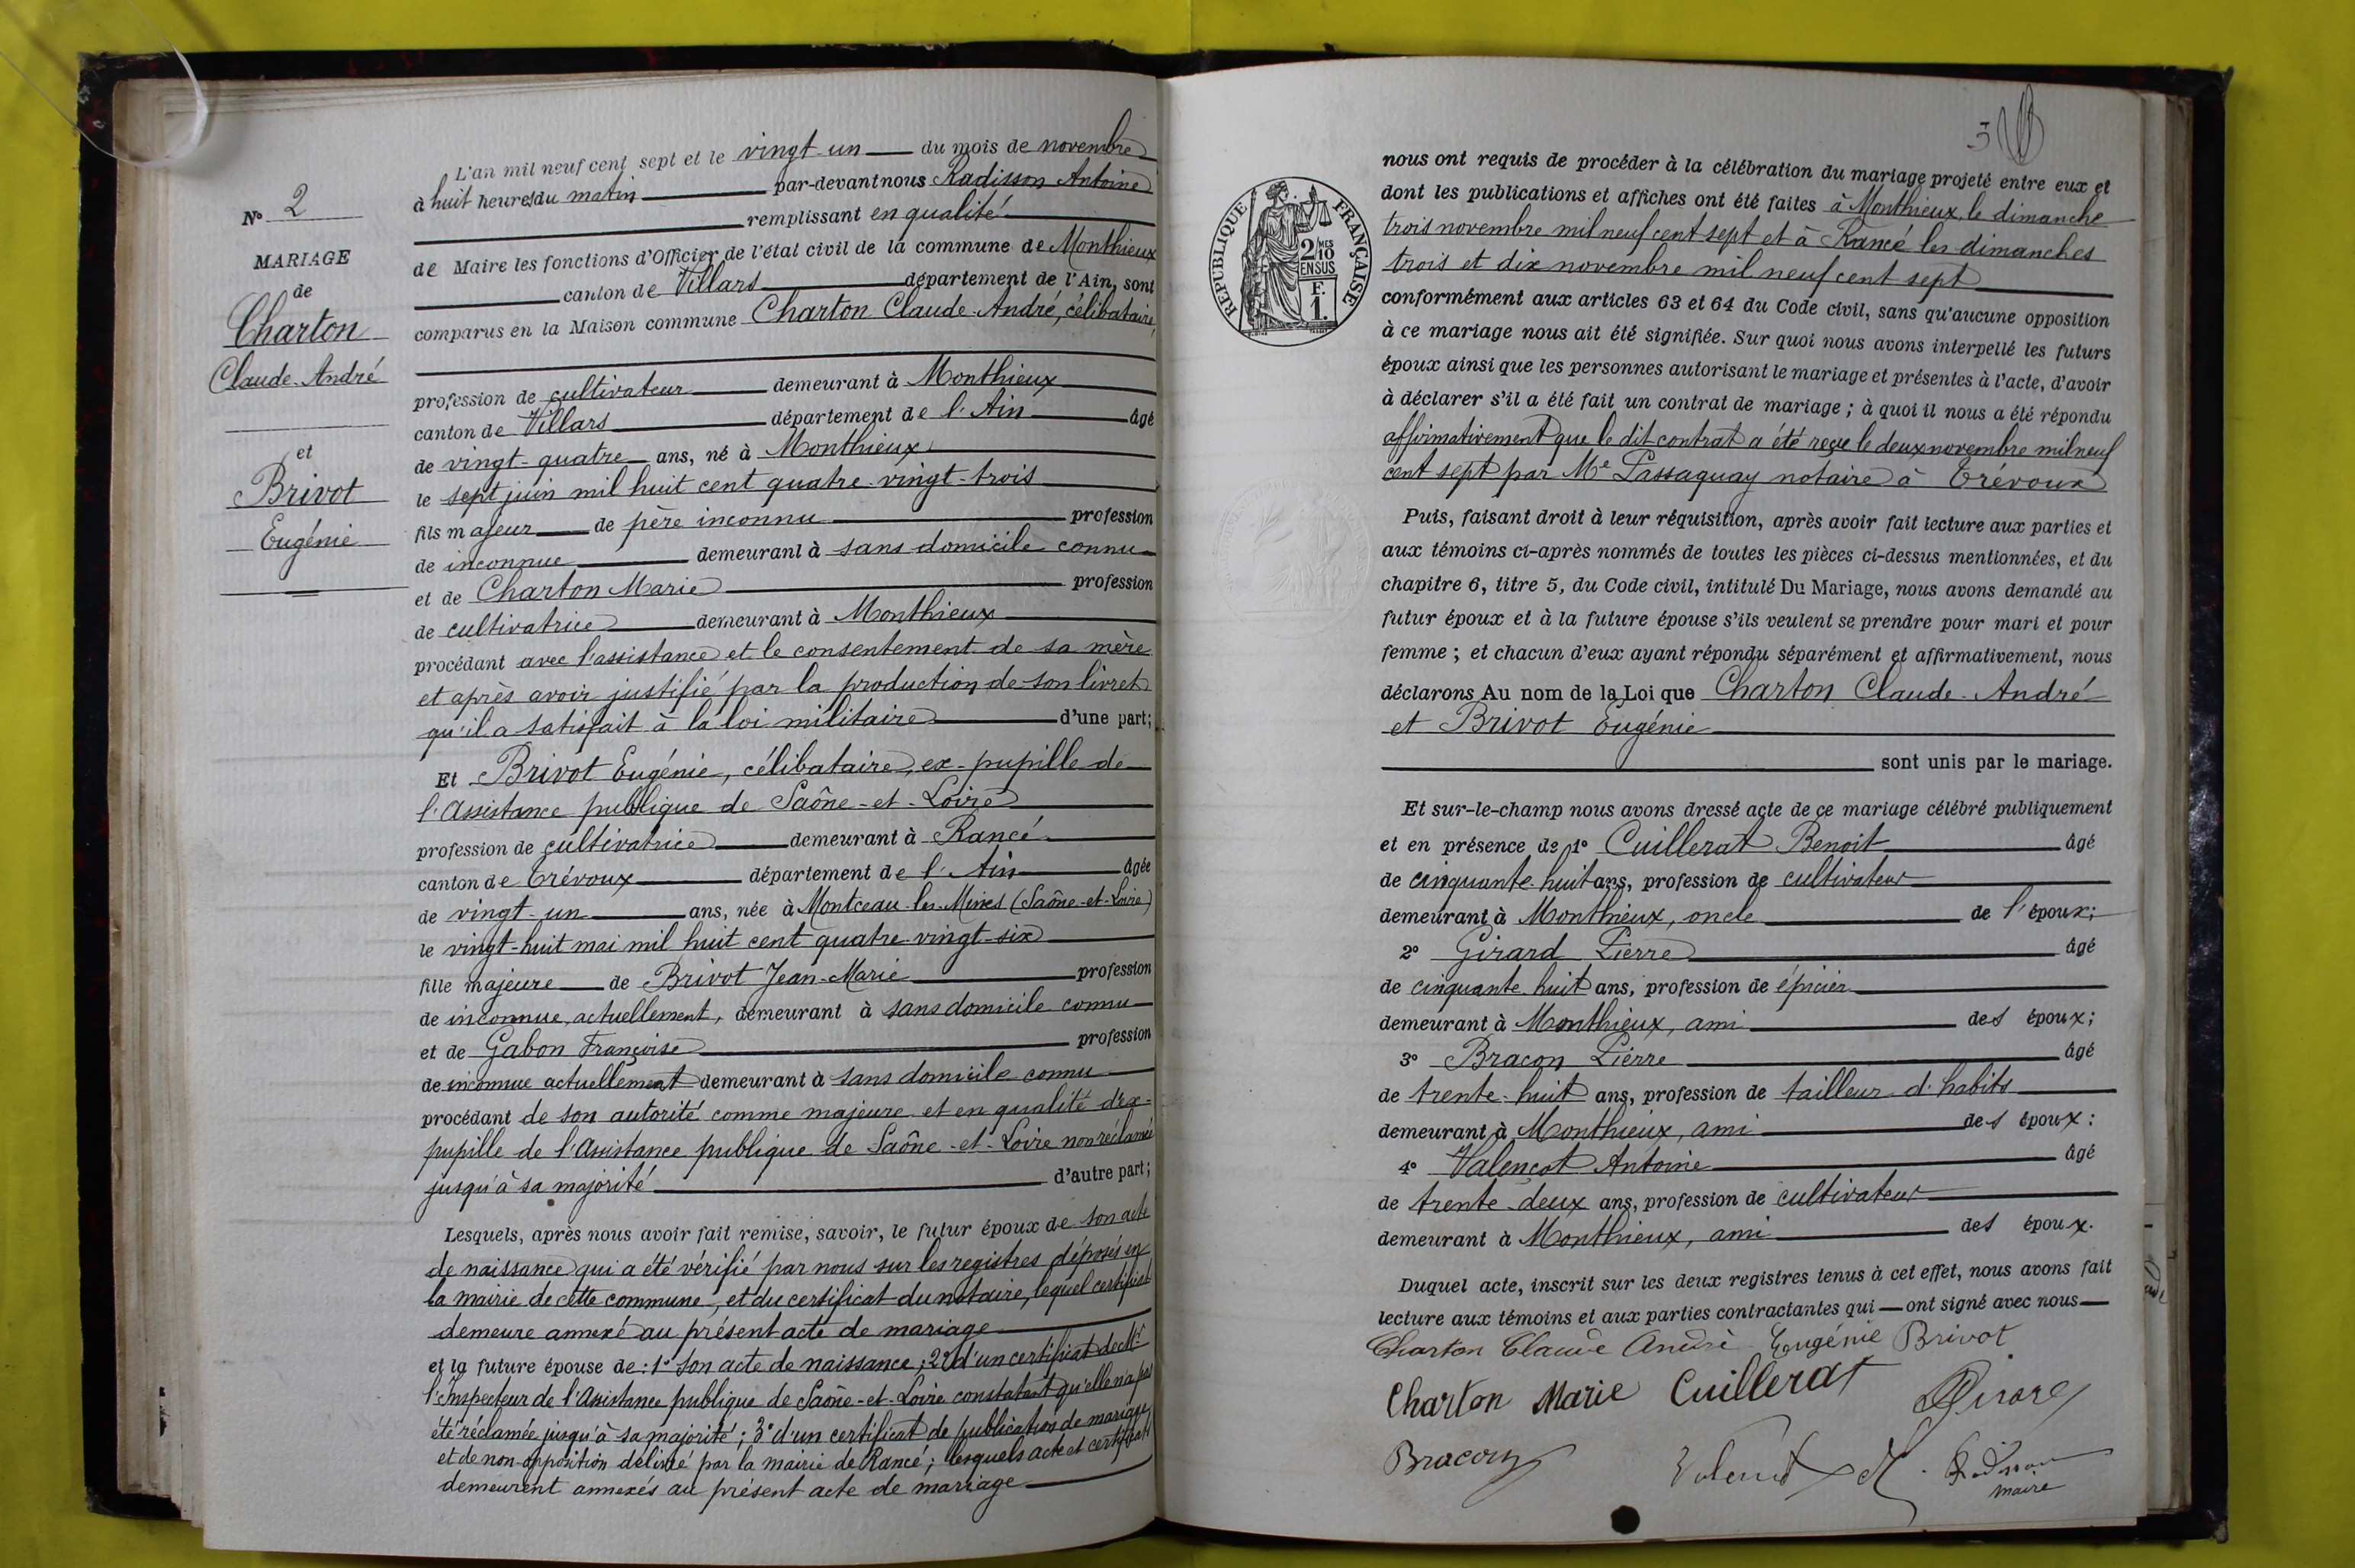 N° 2
MARIAGE
de
Charton
Claude-André
et
Brivot
Eugénie
L'an mil neuf cent sept et le vingt-un du mois de novembre
à huit heures du matin par-devant nous Radisson Antoine
remplissant en qualité
de Maire les fonctions d'Officier de l'état civil de la commune de Monthieux
canton de Villars département de l'Ain, sont
comparus en la Maison commune Charton Claude-André, célibataire,
profession de cultivateur demeurant à Monthieux
canton de Villars département de l'Ain âgé
de vingt-quatre ans, né à Monthieux
le sept juin mil huit cent quatre-vingt-trois
fils majeur de père inconnu profession
de inconnue demeurant à sans domicile connu
et de Charton Marie profession
de cultivatrice demeurant à Monthieux
procédant avec l'assistance et le consentement de sa mère
et après avoir justifié par la production de son livret
qu'il a satisfait à la loi militaire d'une part;
Et Brivot Eugénie, célibataire, ex-pupille de
l'Assistance publique de Saône-et-Loire
profession de cultivatrice demeurant à Rancé
canton de Trévoux département de l'Ain âgée
de vingt-un ans, née à Montceau-les-Mines (Saône-et-Loire)
le vingt-huit mai mil huit cent quatre-vingt-six
fille majeure de Brivot Jean-Marie profession
de inconnue, actuellement, demeurant à sans domicile connu
et de Gabon Françoise profession
de inconnue actuellement demeurant à sans domicile connu
procédant de son autorité comme majeure et en qualité d'ex-
pupille de l'Assistance publique de Saône-et-Loire non réclamée
jusqu'à sa majorité d'autre part;
Lesquels, après nous avoir fait remise, savoir, le futur époux de son acte
de naissance qui a été vérifié par nous sur les registres déposés en
la mairie de cette commune, et du certificat du notaire, lequel certificat
demeure annexé au présent acte de mariage
et la future épouse de: 1° son acte de naissance; 2° d'un certificat de Mr
l'Inspecteur de l'Assistance publique de Saône-et-Loire constatant qu'elle n'a pas
été réclamée jusqu'à sa majorité; 3° d'un certificat de publication de mariage
et de non-opposition délivré par la mairie de Rancé; lesquels acte et certificats
demeurent annexés au présent acte de mariage
3
RÉPUBLIQUE FRANÇAISE
2/10 MES
EN SUS
F.
1.
nous ont requis de procéder à la célébration du mariage projeté entre eux et
dont les publications et affiches ont été faites à Monthieux, le dimanche
trois novembre mil neuf cent sept et à Rancé les dimanches
trois et dix novembre mil neuf cent sept
conformément aux articles 63 et 64 du Code civil, sans qu'aucune opposition
à ce mariage nous ait été signifiée. Sur quoi nous avons interpellé les futurs
époux ainsi que les personnes autorisant le mariage et présentes à l'acte, d'avoir
à déclarer s'il a été fait un contrat de mariage; à quoi il nous a été répondu
affirmativement que le dit contrat a été reçu le deux novembre mil neuf
cent sept par Me Passaquay notaire à Trévoux
Puis, faisant droit à leur réquisition, après avoir fait lecture aux parties et
aux témoins ci-après nommés de toutes les pièces ci-dessus mentionnées, et du
chapitre 6, titre 5, du Code civil, intitulé Du Mariage, nous avons demandé au
futur époux et à la future épouse s'ils veulent se prendre pour mari et pour
femme; et chacun d'eux ayant répondu séparément et affirmativement, nous
déclarons Au nom de la Loi que Charton Claude-André
et Brivot Eugénie
sont unis par le mariage.
Et sur-le-champ nous avons dressé acte de ce mariage célébré publiquement
et en présence de 1° Cuillerat Benoit âgé
de cinquante-huit ans, profession de cultivateur
demeurant à Monthieux, oncle de l'époux;
2° Girard Pierre âgé
de cinquante-huit ans, profession de épicier
demeurant à Monthieux, ami des époux;
3° Bracon Pierre âgé
de trente-huit ans, profession de tailleur d'habits
demeurant à Monthieux, ami des époux:
4° Valençot Antoine âgé
de trente-deux ans, profession de cultivateur
demeurant à Monthieux, ami des époux.
Duquel acte, inscrit sur les deux registres tenus à cet effet, nous avons fait
lecture aux témoins et aux parties contractantes qui ont signé avec nous
Charton Claude André Eugénie Brivot
Charton Marie Cuillerat Girard
Bracon
maire